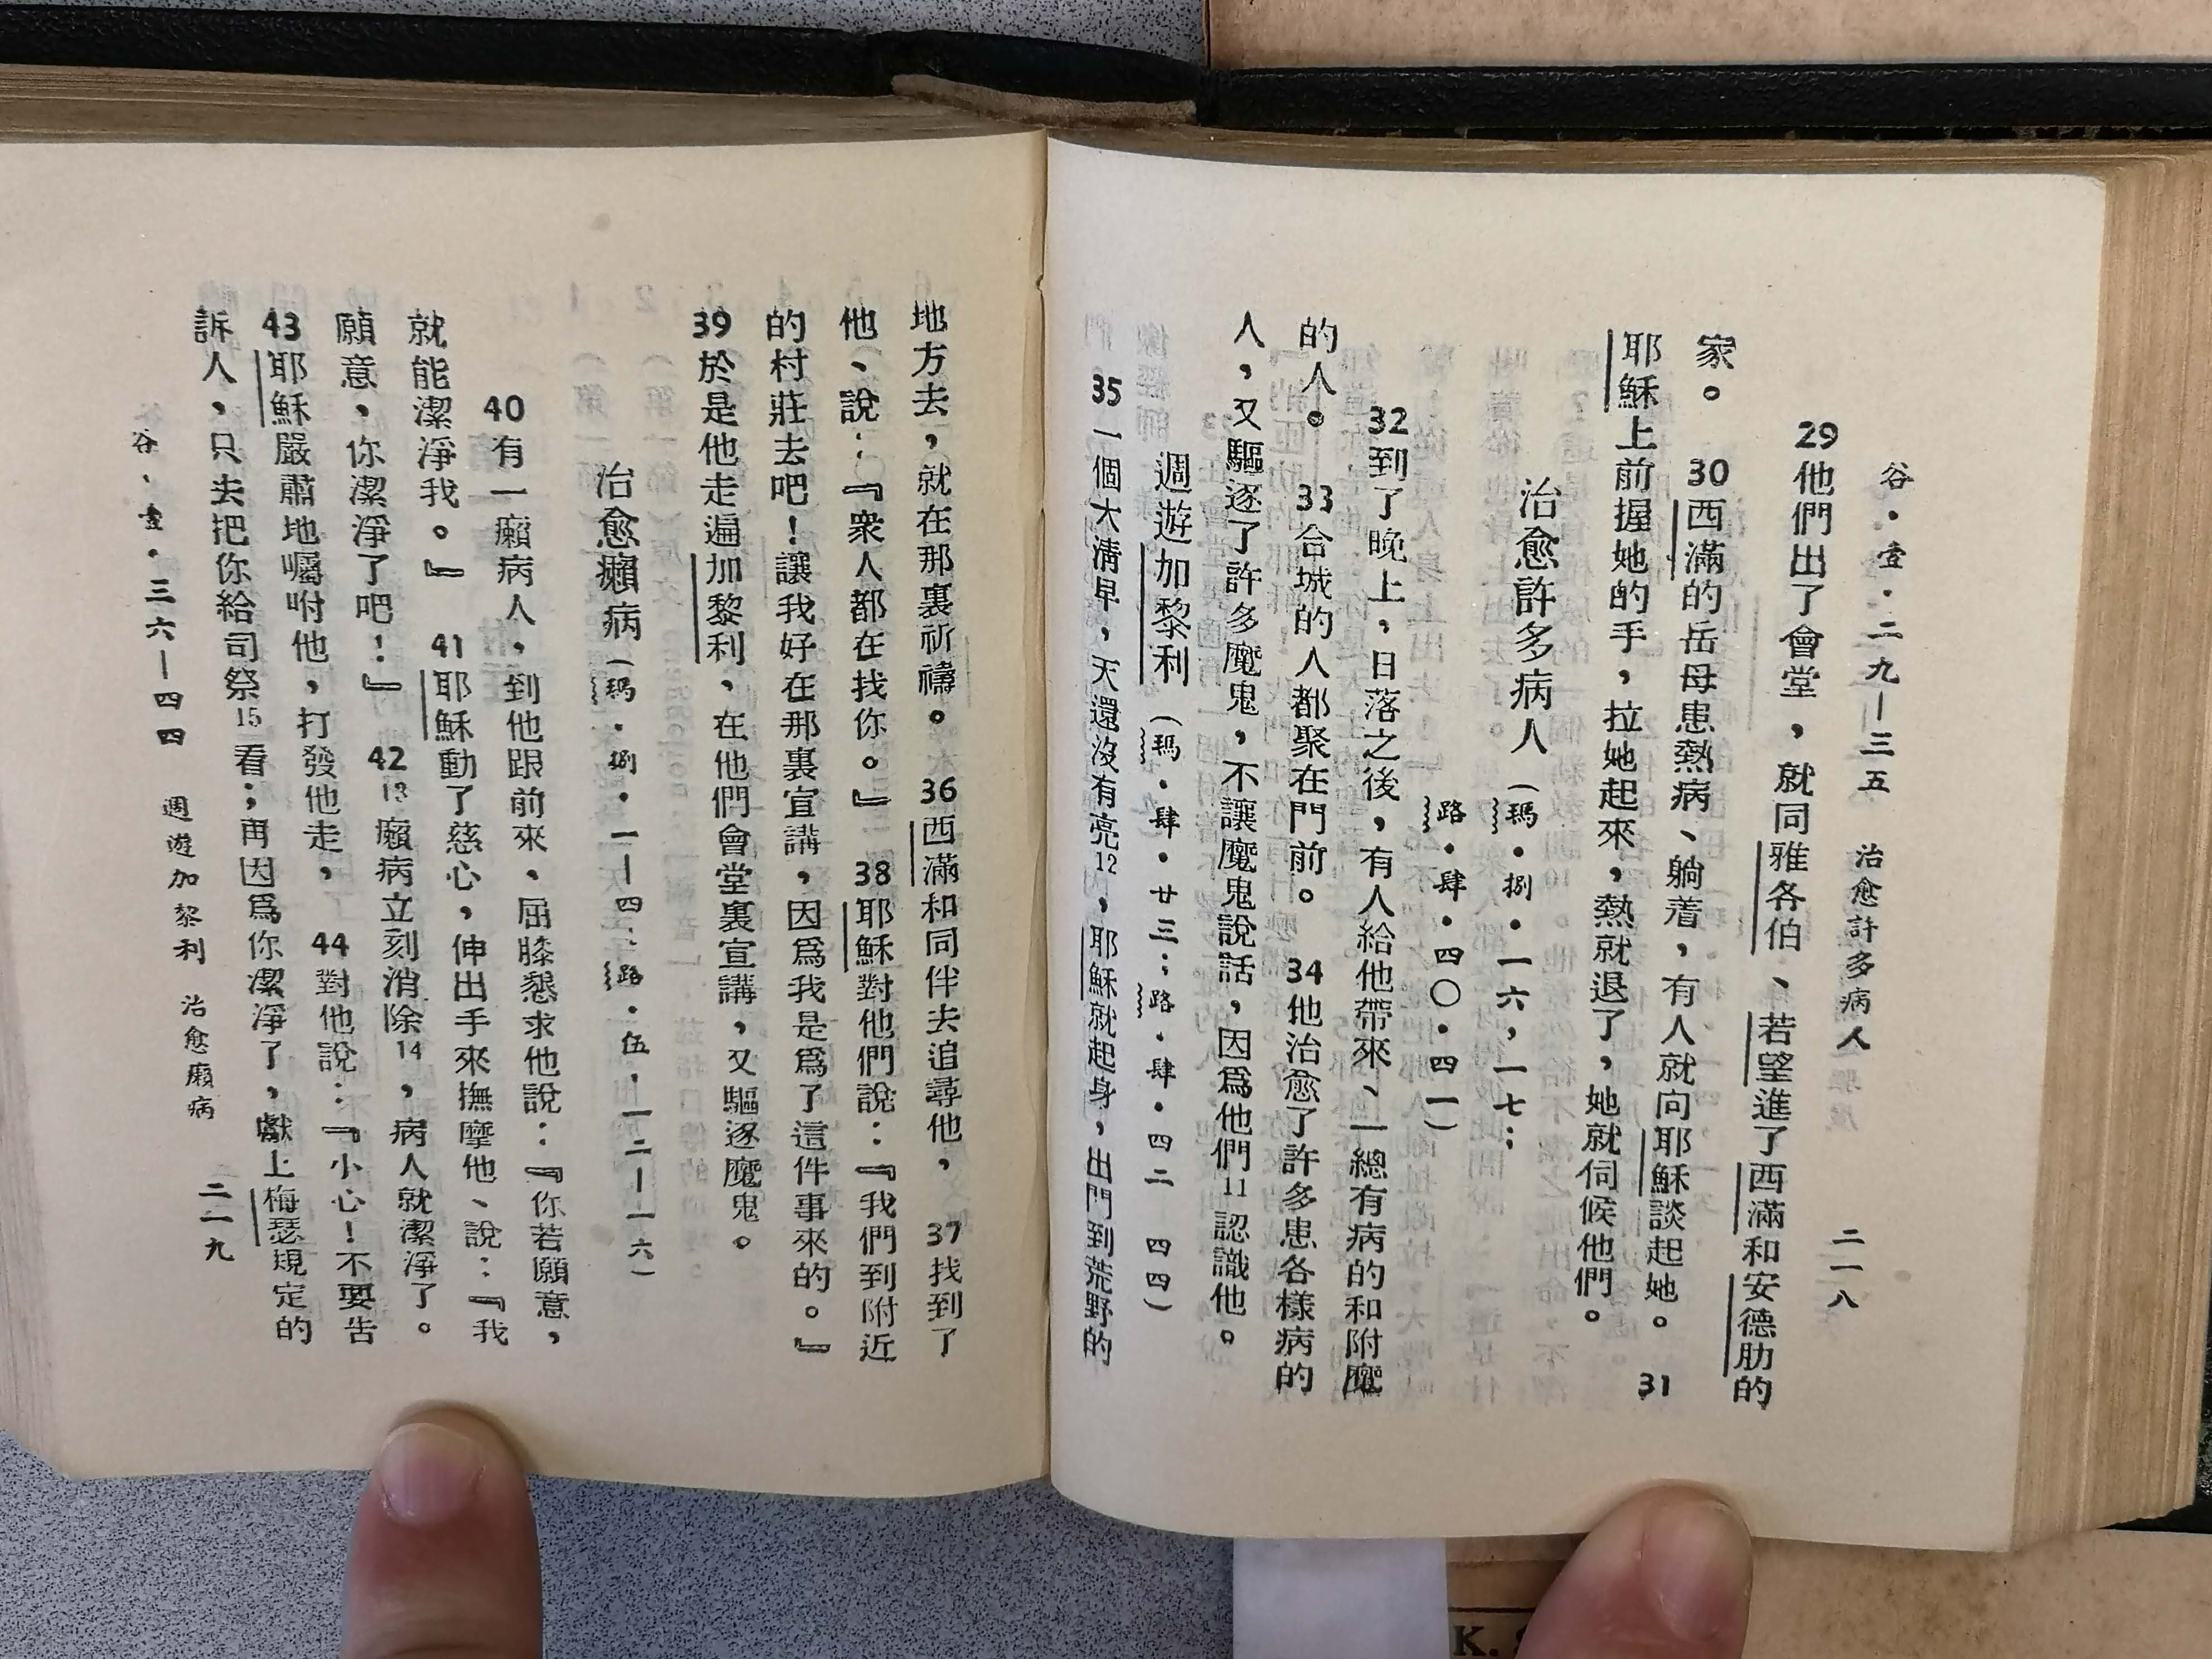 谷·壹·二九—三五 治愈許多病人 二一八
29他們出了會堂，就同雅各伯、若望進了西滿和安德肋的
家。30西滿的岳母患熱病、躺着，有人就向耶穌談起她。31
耶穌上前握她的手，拉她起來，熱就退了，她就伺候他們。
治愈許多病人（瑪·捌·一六，一七；
路·肆·四〇·四一）
32到了晚上，日落之後，有人給他帶來、一總有病的和附魔
的人。33合城的人都聚在門前。34他治愈了許多患各樣病的
人，又驅逐了許多魔鬼，不讓魔鬼說話，因爲他們11認識他。
週遊加黎利（瑪·肆·廿三；路·肆·四二—四四）
35一個大淸早，天還沒有亮12，耶穌就起身，出門到荒野的
地方去，就在那裏祈禱。36西滿和同伴去追尋他，37找到了
他、說：『衆人都在找你。』38耶穌對他們說：『我們到附近
的村莊去吧！讓我好在那裏宣講，因爲我是爲了這件事來的。』
39於是他走遍加黎利，在他們會堂裏宣講，又驅逐魔鬼。
治愈癩病（瑪·捌·一—四；路·伍·一二—一六）
40有一癩病人，到他跟前來，屈膝懇求他說：『你若願意，
就能潔淨我。』41耶穌動了慈心，伸出手來撫摩他、說：『我
願意，你潔淨了吧！』42 13癩病立刻消除14，病人就潔淨了。
43耶穌嚴肅地囑咐他，打發他走，44對他說：『小心！不要告
訴人，只去把你給司祭15看；再因爲你潔淨了，獻上梅瑟規定的
谷·壹·三六—四四 週遊加黎利 治愈癩病 二一九
K.